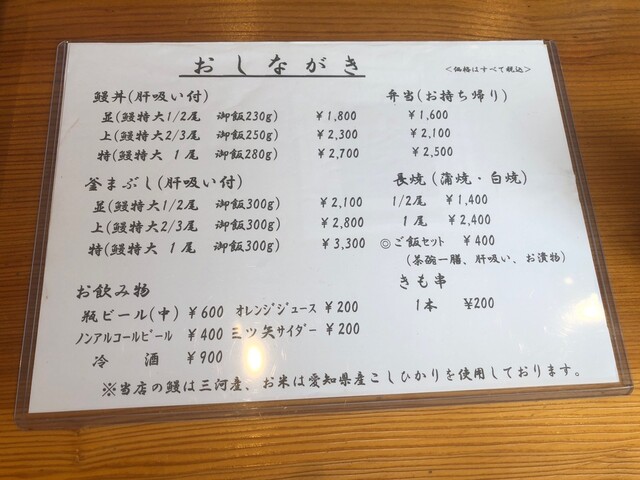 おしながき
<価格はすべて税込>
鰻丼(肝吸い付)
並(鰻特大1/2尾 御飯230g) ￥1,800
上(鰻特大2/3尾 御飯250g) ￥2,300
特(鰻特大 1尾 御飯280g) ￥2,700
弁当(お持ち帰り)
￥1,600
￥2,100
￥2,500
釜まぶし(肝吸い付)
並(鰻特大1/2尾 御飯300g) ￥2,100
上(鰻特大2/3尾 御飯300g) ￥2,800
特(鰻特大 1尾 御飯300g) ￥3,300
長焼(蒲焼・白焼)
1/2尾 ￥1,400
1尾 ￥2,400
◎ご飯セット ￥400
(茶碗一膳、肝吸い、お漬物)
きも串
1本 ¥200
お飲み物
瓶ビール(中) ￥600 オレンジジュース ￥200
ノンアルコールビール ￥400 三ツ矢サイダー ￥200
冷酒 ￥900
※当店の鰻は三河産、お米は愛知県産こしひかりを使用しております。